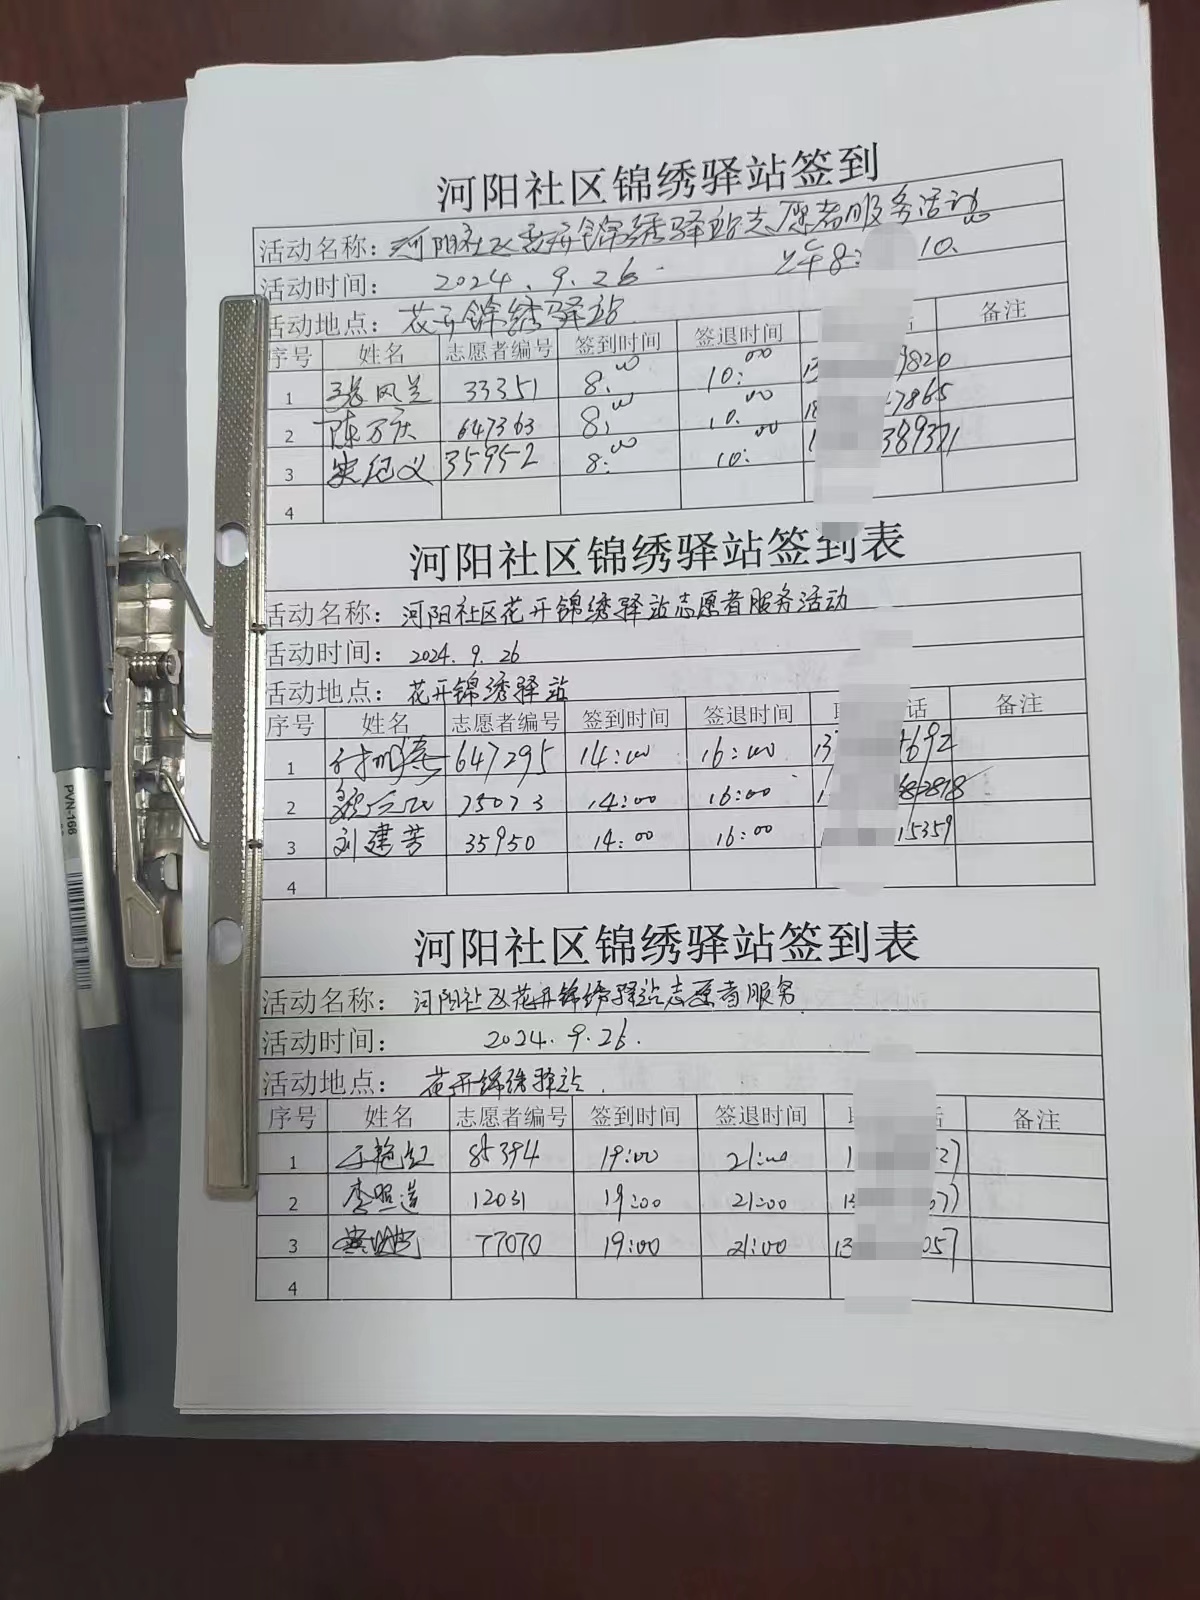 河阳社区锦绣驿站签到
活动名称：河阳社区花开锦绣驿站志愿者服务活动
活动时间： 2024.9.26. 上午8: 10.
活动地点：花开锦绣驿站
序号 姓名 志愿者编号 签到时间 签退时间 话 备注
1 张凤兰 33351 8:00 10:00 13 9820
2 陈万庆 647363 8:00 10:00 18 7865
3 35952 8:00 10:00 1 389371
4
河阳社区锦绣驿站签到表
活动名称：河阳社区花开锦绣驿站志愿者服务活动
活动时间： 2024.9.26
活动地点： 花开锦绣驿站
序号 姓名 志愿者编号 签到时间 签退时间 话 备注
1 647295 14:00 16:00 13 692
2 75073 14:00 16:00 1
3 刘建芳 35950 14:00 16:00 1 15359
4
河阳社区锦绣驿站签到表
活动名称： 河阳社区花开锦绣驿站志愿者服务
活动时间： 2024.9.26.
活动地点： 花开锦绣驿站.
序号 姓名 志愿者编号 签到时间 签退时间 备注
1 于艳红 85394 19:00 21:00 1 27
2 李照造 12031 19:00 21:00 13 77
3 77070 19:00 21:00 13 057
4
PVN-168